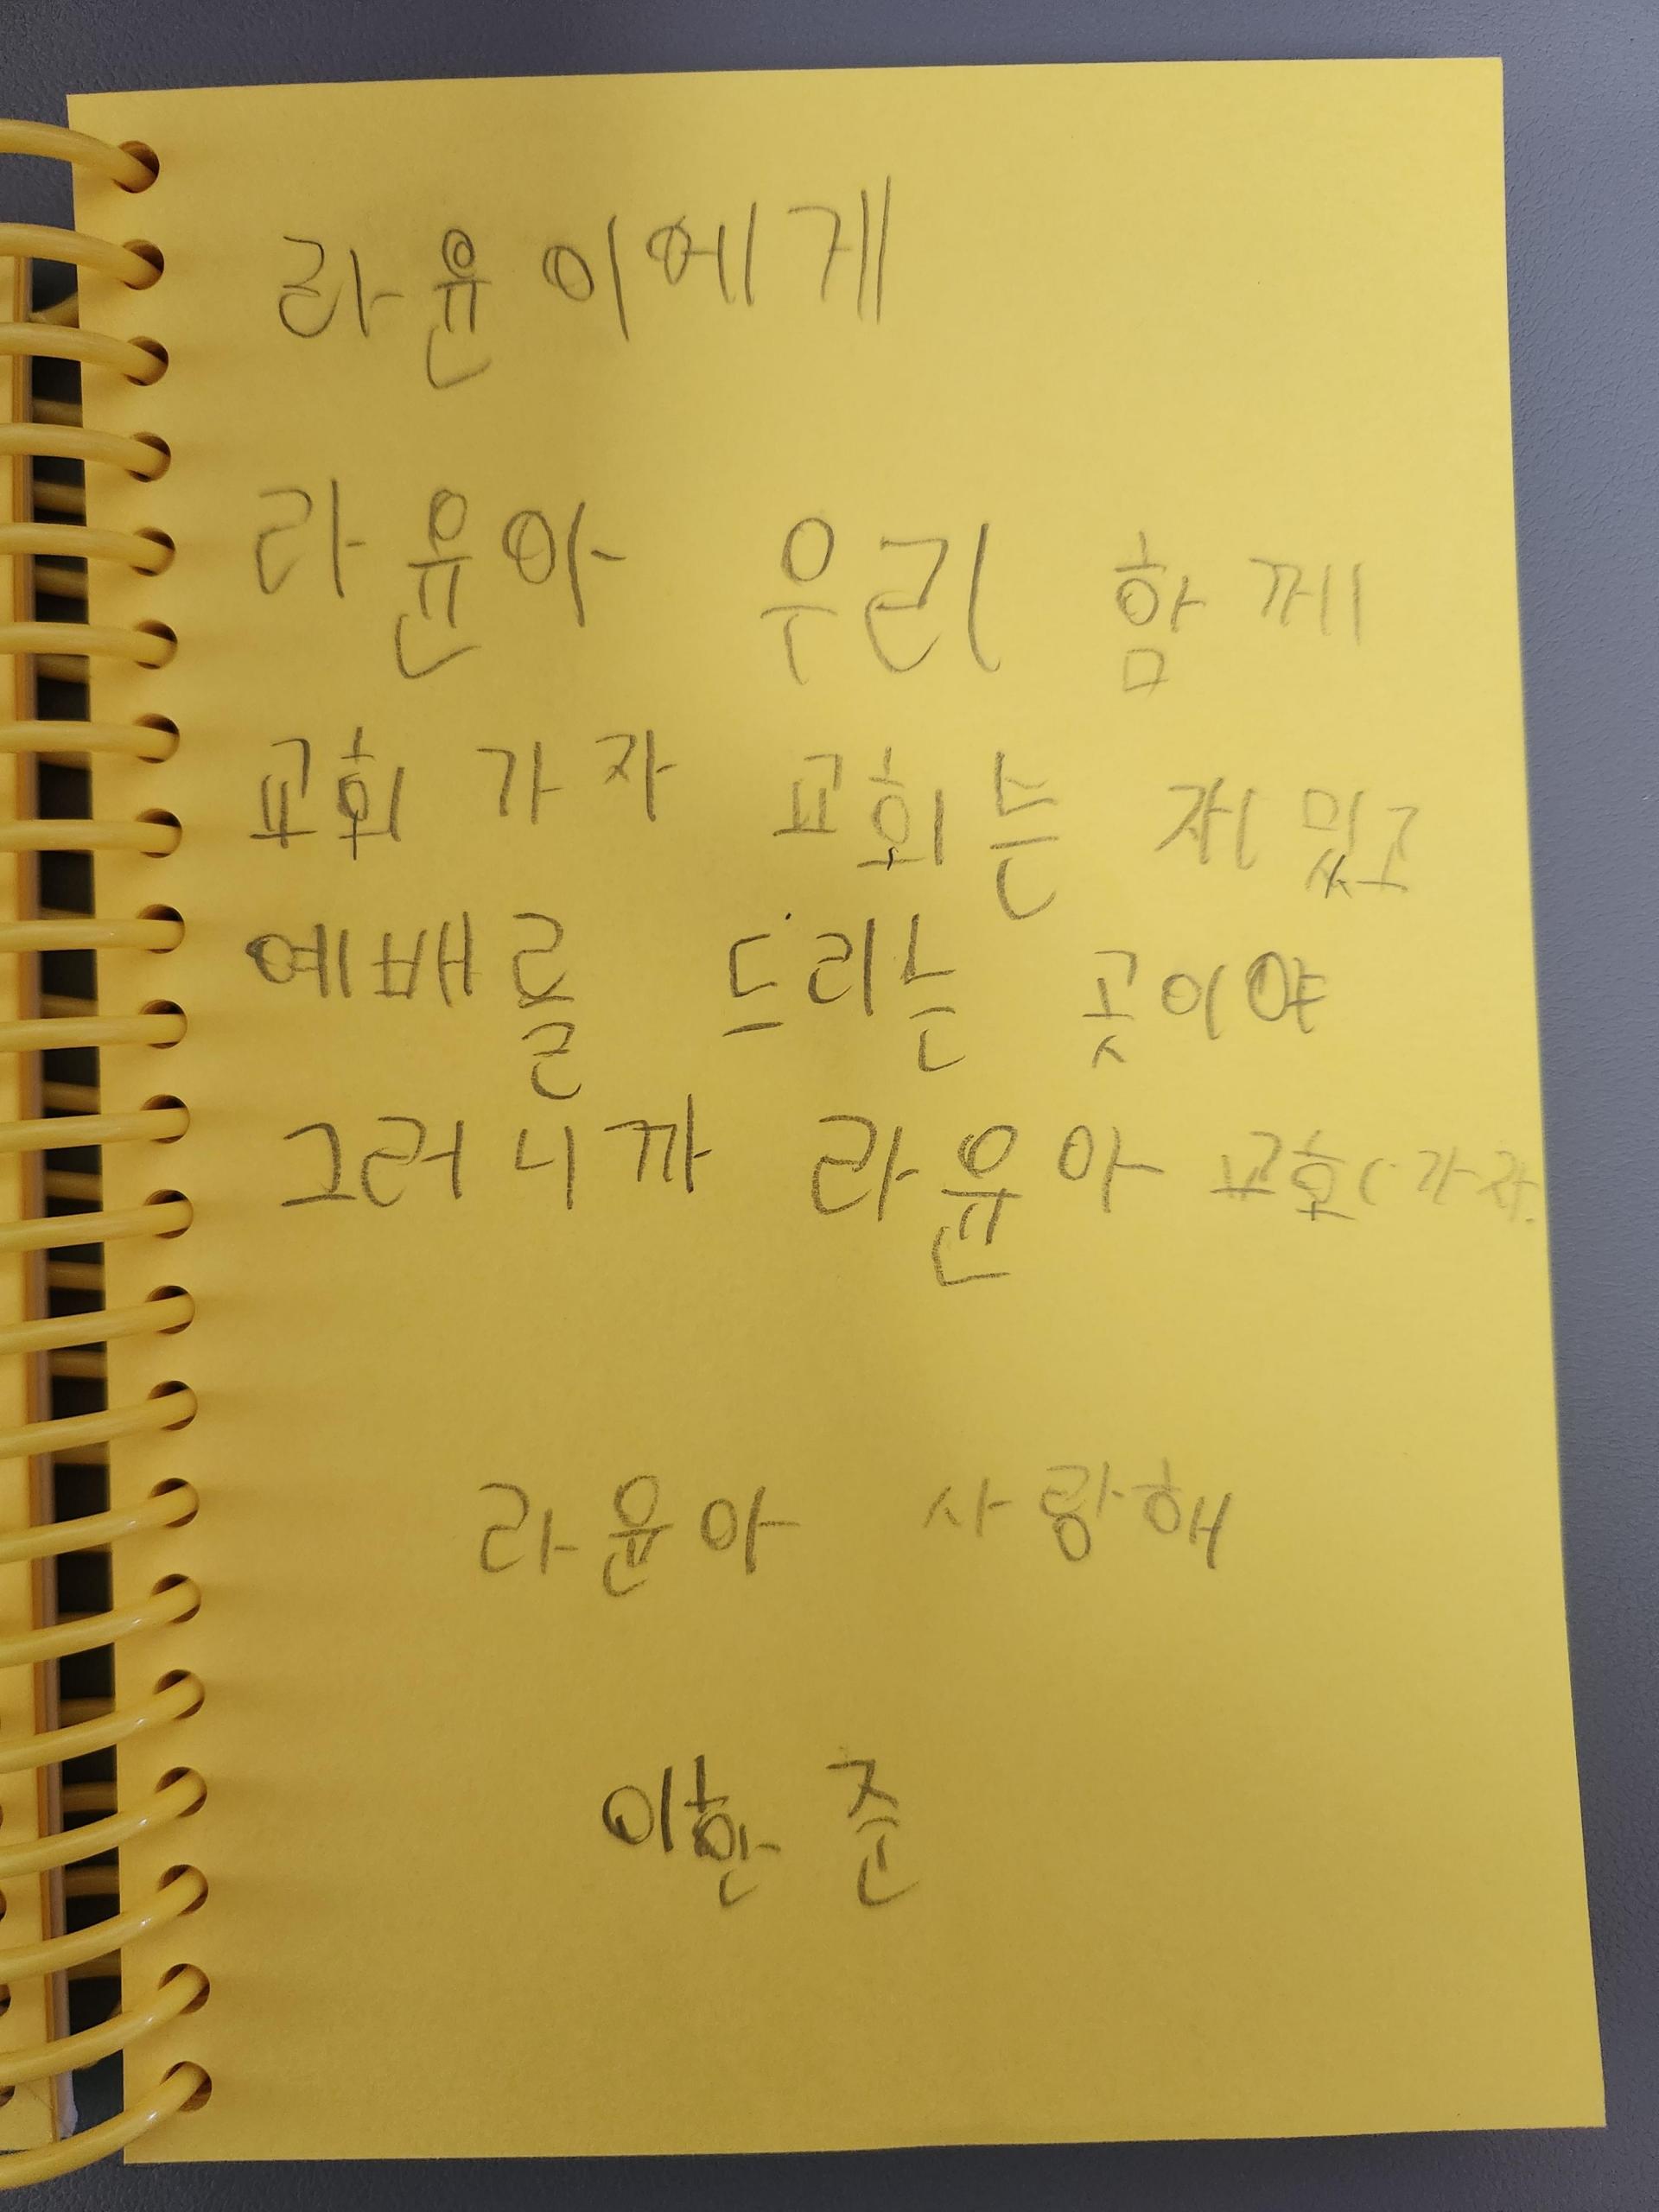 라윤이에게
라윤아 우리 함께
교회 가자 교회는 재밌고
예배를 드리는 곳이야
그러니까 라윤아 교회 가자.
라윤아 사랑해
이한준